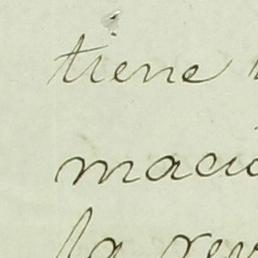 tiene
maci
la rev